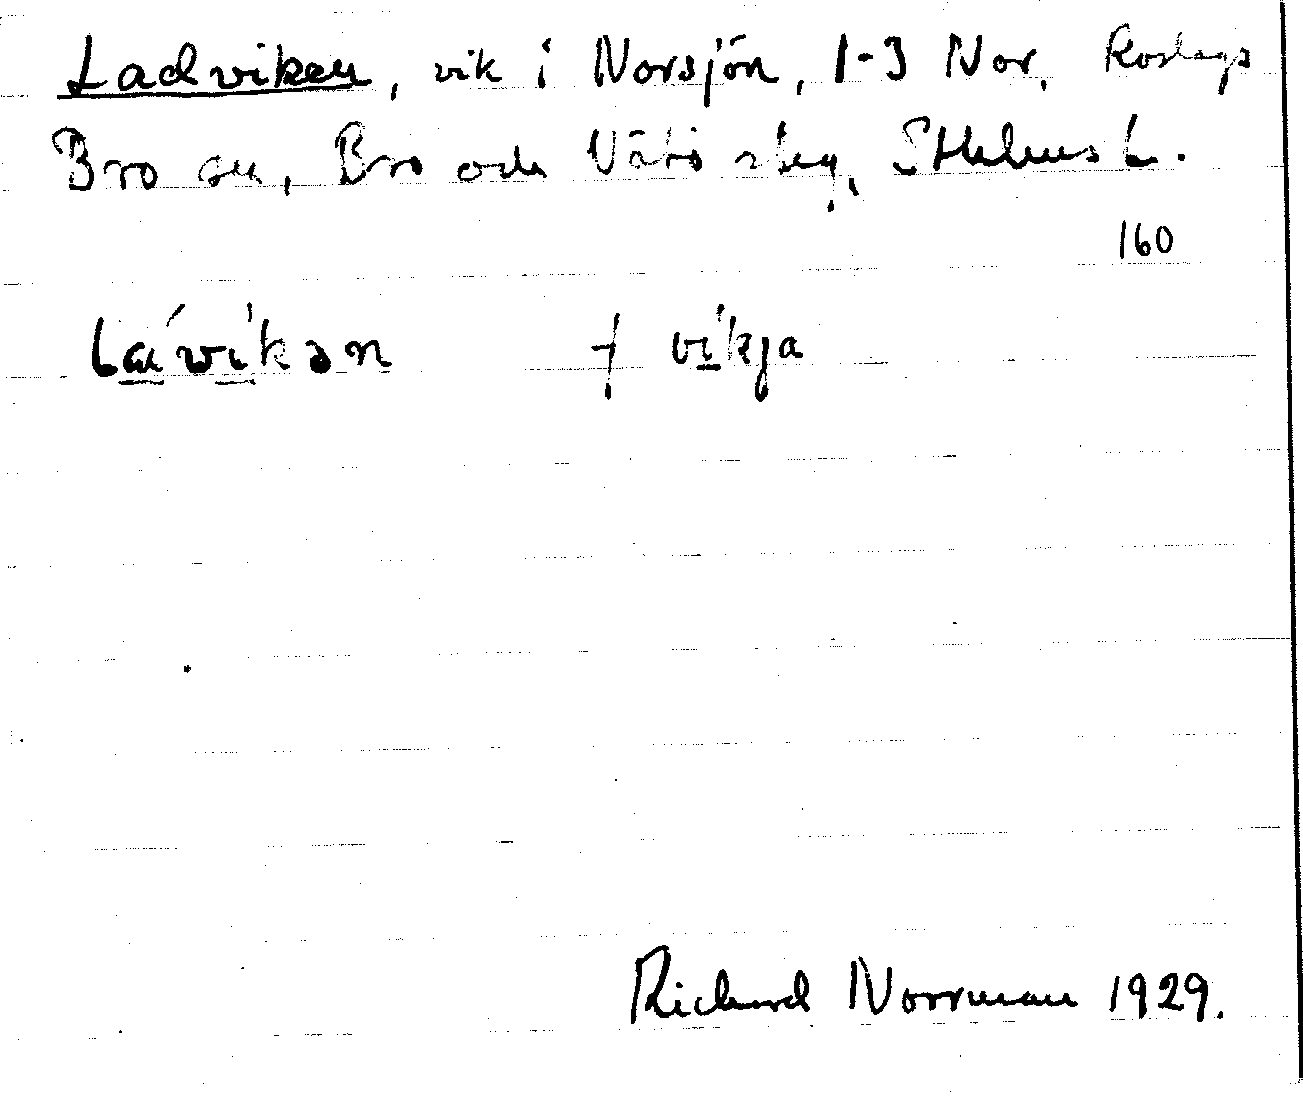 Ladviken, vik i Norsjön, 1-3 Nor, Roslags
Bro sn, Bro och Vätö skg, Sthlms L.
160
Lávikən f víkja
Richard Norrman 1929.